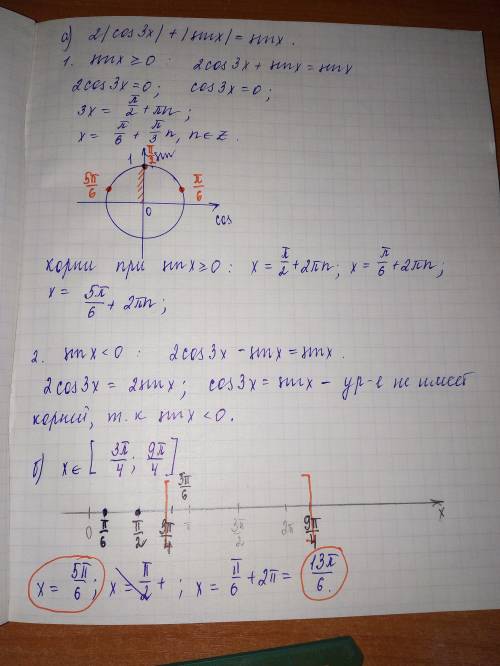 а) 2|cos3x| + |sinx| = sinx.
1. sinx ≥ 0 : 2cos3x + sinx = sinx
2cos3x = 0; cos3x = 0;
3x = π/2 + πn;
x = π/6 + π/3 n, n ∈ Z.
π/2
1 sin
5π/6 π/6
0 cos
корни при sinx ≥ 0 : x = π/2 + 2πn; x = π/6 + 2πn;
x = 5π/6 + 2πn;
2. sinx < 0 : 2cos3x - sinx = sinx.
2cos3x = 2sinx; cos3x = sinx – ур-е не имеет
корней, т.к sinx < 0.
б) x ∈ [3π/4; 9π/4]
5π/6
0 π/6 π/2 3π/4 π 3π/2 2π 9π/4 x
x = 5π/6; x = π/2 + ; x = π/6 + 2π = 13π/6.